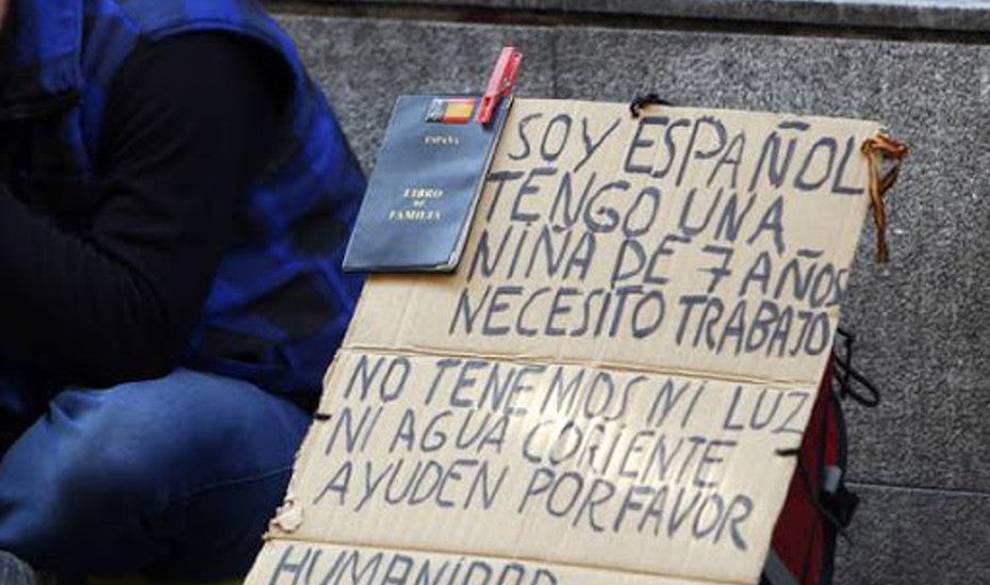 ESPAÑA
LIBRO
DE
FAMILIA
SOY ESPAÑOL
TENGO UNA
NIÑA DE 7 AÑOS
NECESITO TRABAJO
NO TENEMOS NI LUZ
NI AGUA CORIENTE
AYUDEN POR FAVOR
HUMANIDAD